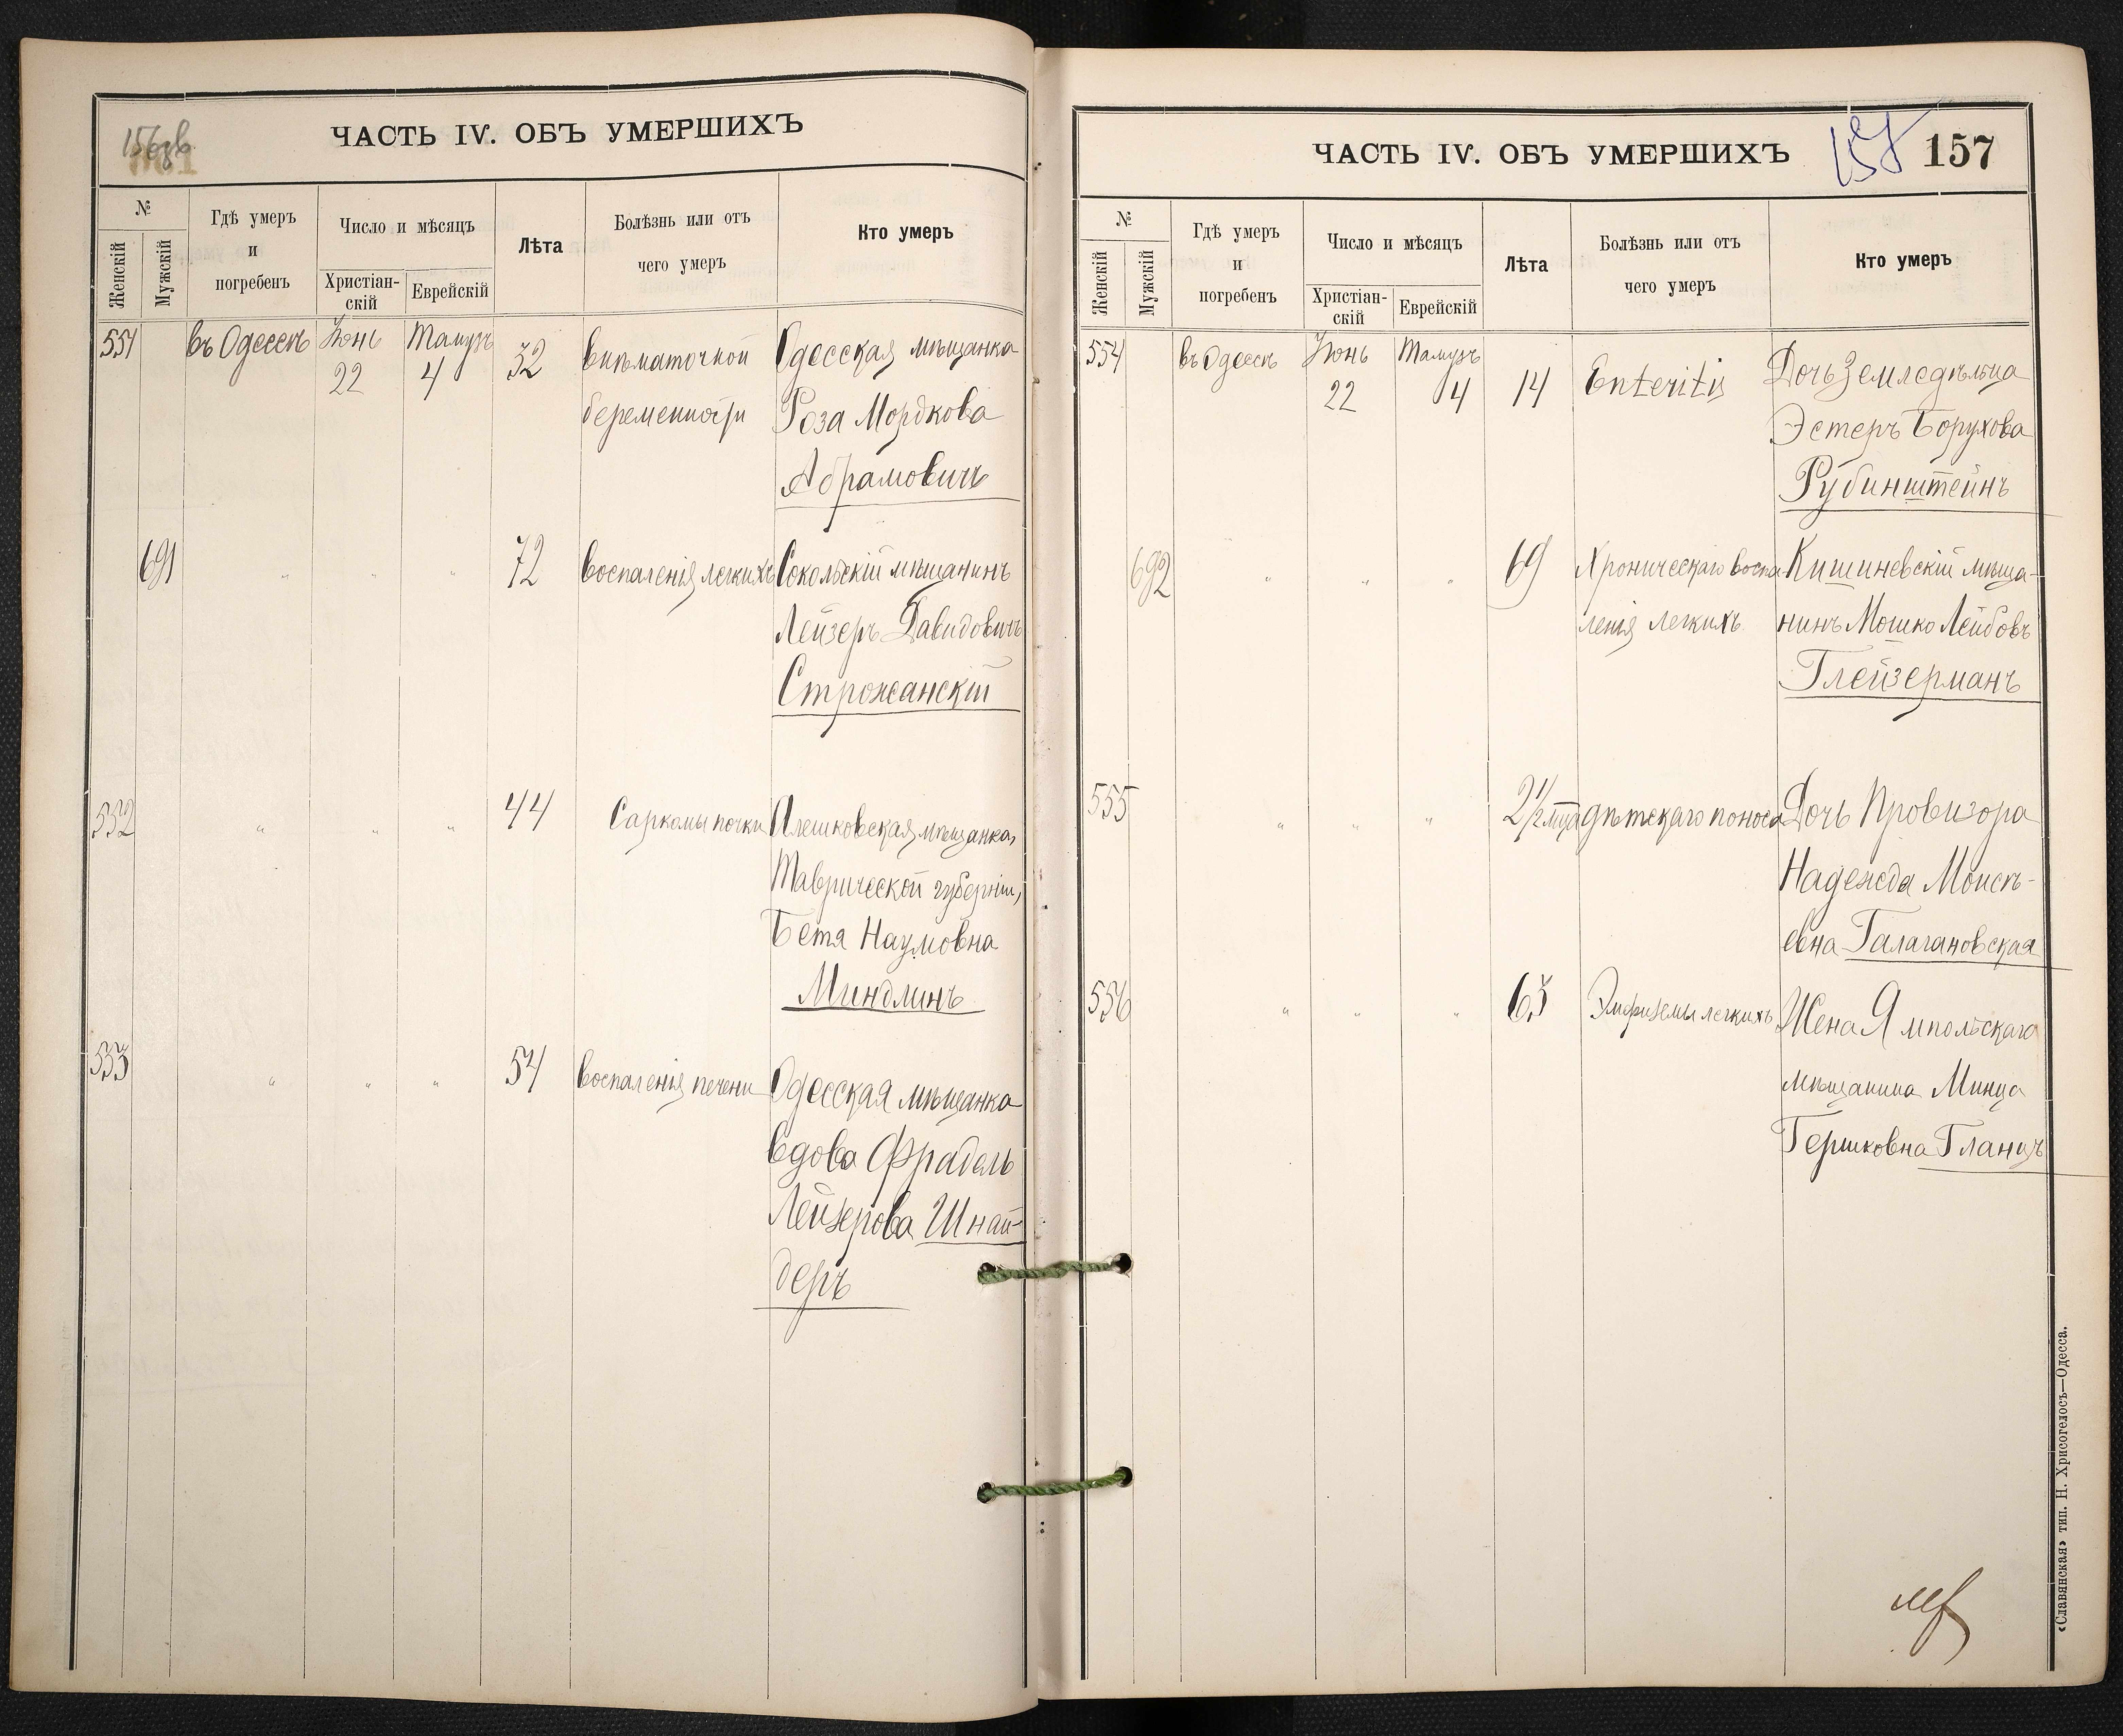 156об
ЧАСТЬ IV. ОБЪ УМЕРШИХЪ
№
Женскій
Мужскій
Гдѣ умеръ
и
погребенъ
Число и мѣсяцъ
Христіан-
скій
Еврейскій
Лѣта
Болѣзнь или отъ
чего умеръ
Кто умеръ
551 въ Одессѣ Іюнь Тамузъ 32 внѣматочной Одесская мѣщанка
22 4 беременности Роза Мордкова
Абрамовичъ
691 " " " 72 воспаленія легкихъ Сокольскій мѣщанинъ
Лейзеръ Давидовичъ
Строжанскій
552 " " " 44 Саркомы почки Алешковская мѣщанка,
Таврической губерніи,
Бетя Наумовна
Миндлинъ
553 " " " 54 воспаленія печени Одесская мѣщанка
вдова Фрадель
Лейзерова Шнай-
деръ
ЧАСТЬ IV. ОБЪ УМЕРШИХЪ
157
157
№
Женскій
Мужскій
Гдѣ умеръ
и
погребенъ
Число и мѣсяцъ
Христіан-
скій
Еврейскій
Лѣта
Болѣзнь или отъ
чего умеръ
Кто умеръ
554 въ Одессѣ Іюнь Тамузъ 14 Enteritis Дочь Земледѣльца
22 4 Эстеръ Борухова
Рубинштейнъ
692 " " " 69 Хроническаго воспа- Кишиневскій мѣща-
ленія легкихъ нинъ Мошко Лейбовъ
Глейзерманъ
555 " " " 2 1/2 мца дѣтскаго поноса Дочь Провизора
Надежда Моисѣ-
евна Галагановская
556 " " " 65 Эмфиземы легкихъ Жена Ямпольскаго
мѣщанина Минца
Гершковна Гланцъ
«Славянская» тип. Н. Хрисогелосъ—Одесса.